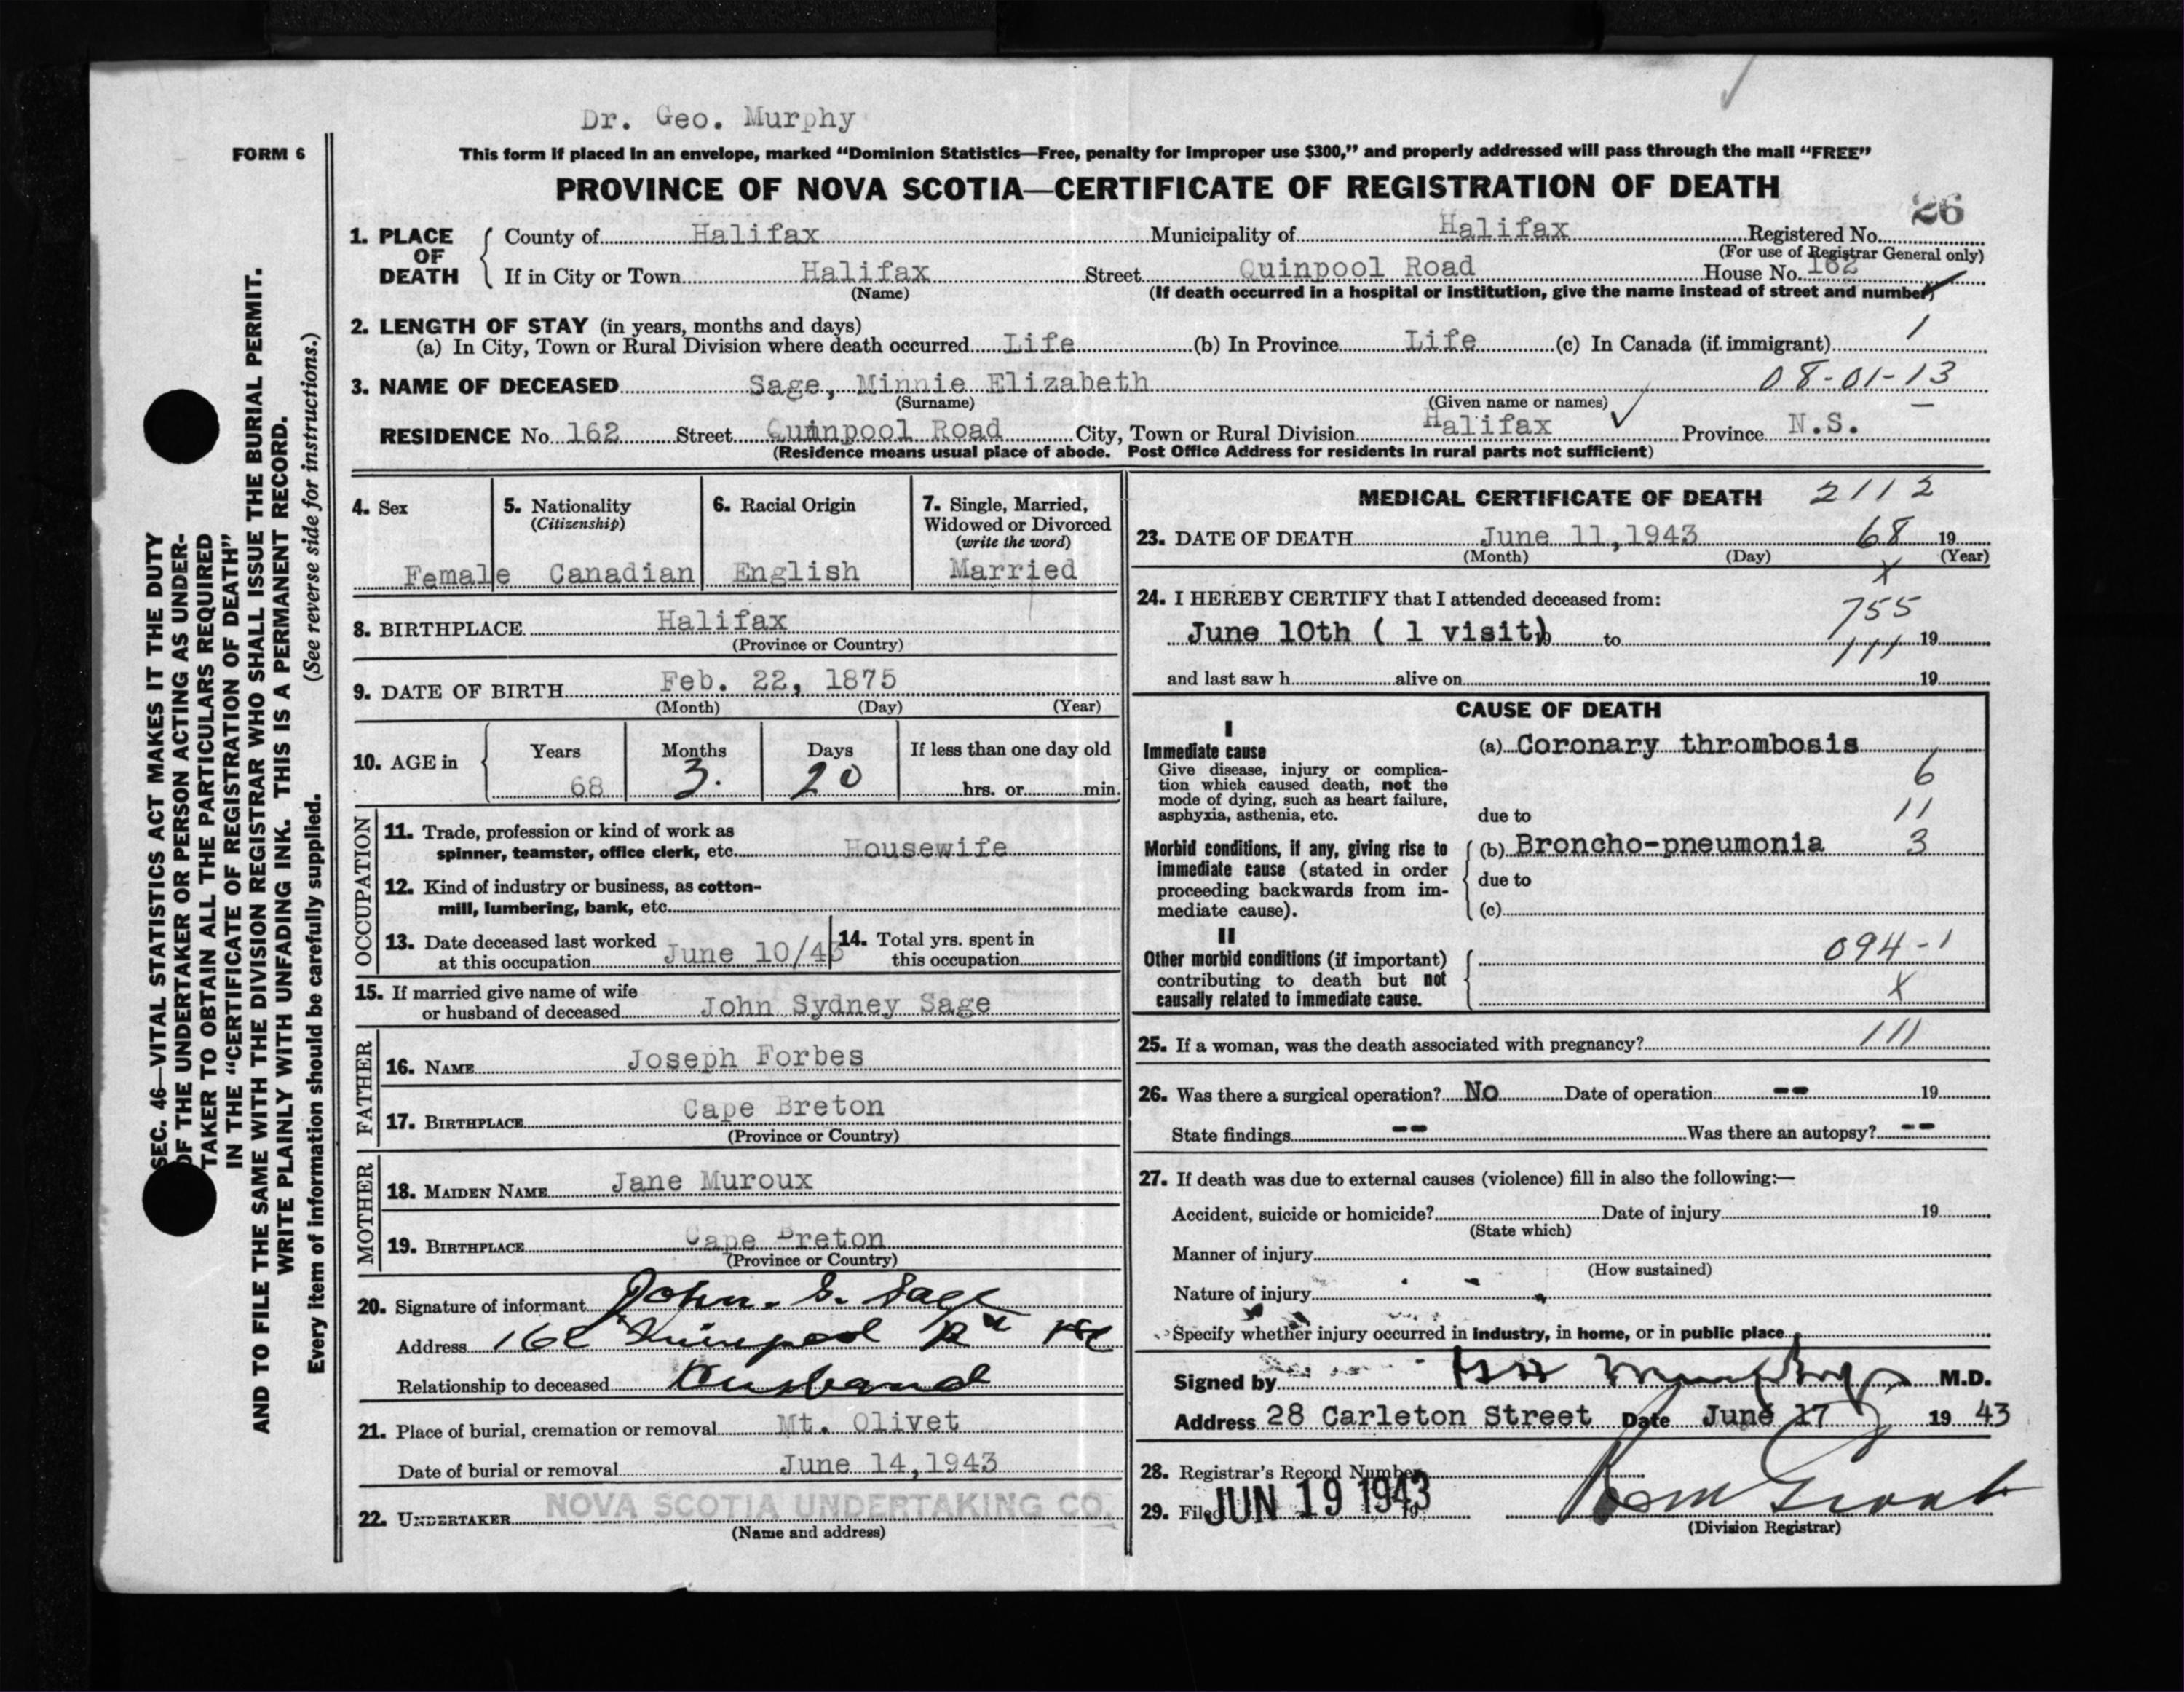 Dr. Geo. Murphy
FORM 6
This form if placed in an envelope, marked “Dominion Statistics—Free, penalty for improper use $300,” and properly addressed will pass through the mail “FREE”
PROVINCE OF NOVA SCOTIA—CERTIFICATE OF REGISTRATION OF DEATH
26
1. PLACE OF DEATH
County of Halifax Municipality of Halifax Registered No.
(For use of Registrar General only)
If in City or Town Halifax Street Quinpool Road House No. 162
(Name) (If death occurred in a hospital or institution, give the name instead of street and number)
2. LENGTH OF STAY (in years, months and days)
(a) In City, Town or Rural Division where death occurred Life (b) In Province Life (c) In Canada (if immigrant) 1
3. NAME OF DECEASED Sage, Minnie Elizabeth 08-01-13
(Surname) (Given name or names)
RESIDENCE No 162 Street Quinpool Road City, Town or Rural Division Halifax Province N.S.
(Residence means usual place of abode. Post Office Address for residents in rural parts not sufficient)
4. Sex
Female
5. Nationality
(Citizenship)
Canadian
6. Racial Origin
English
7. Single, Married,
Widowed or Divorced
(write the word)
Married
8. BIRTHPLACE Halifax
(Province or Country)
9. DATE OF BIRTH Feb. 22, 1875
(Month) (Day) (Year)
10. AGE in
Years Months Days If less than one day old
68 3. 20 hrs. or min.
OCCUPATION
11. Trade, profession or kind of work as
spinner, teamster, office clerk, etc. Housewife
12. Kind of industry or business, as cotton-
mill, lumbering, bank, etc.
13. Date deceased last worked
at this occupation June 10/43
14. Total yrs. spent in
this occupation
15. If married give name of wife
or husband of deceased John Sydney Sage
FATHER
16. NAME Joseph Forbes
17. BIRTHPLACE Cape Breton
(Province or Country)
MOTHER
18. MAIDEN NAME Jane Muroux
19. BIRTHPLACE Cape Breton
(Province or Country)
20. Signature of informant John. S. Sage
Address 162 Quinpool Rd
Relationship to deceased Husband
21. Place of burial, cremation or removal Mt. Olivet
Date of burial or removal June 14,1943
22. UNDERTAKER NOVA SCOTIA UNDERTAKING CO.
(Name and address)
MEDICAL CERTIFICATE OF DEATH 2112
23. DATE OF DEATH June 11,1943 68 19
(Month) (Day) (Year)
X
24. I HEREBY CERTIFY that I attended deceased from:
755
June 10th ( 1 visit) to 19
111
and last saw h alive on 19
CAUSE OF DEATH
I
Immediate cause
Give disease, injury or complica-
tion which caused death, not the
mode of dying, such as heart failure,
asphyxia, asthenia, etc.
(a) Coronary thrombosis
6
11
due to
Morbid conditions, if any, giving rise to
immediate cause (stated in order
proceeding backwards from im-
mediate cause).
(b) Broncho-pneumonia 3
due to
(c)
II
Other morbid conditions (if important)
contributing to death but not
causally related to immediate cause.
094-1
X
25. If a woman, was the death associated with pregnancy? 111
26. Was there a surgical operation? No Date of operation -- 19
State findings -- Was there an autopsy? --
27. If death was due to external causes (violence) fill in also the following:—
Accident, suicide or homicide? Date of injury 19
(State which)
Manner of injury
(How sustained)
Nature of injury
Specify whether injury occurred in industry, in home, or in public place
Signed by Murphy M.D.
Address 28 Carleton Street Date June 17 19 43
28. Registrar's Record Number
29. Filed JUN 19 1943 19
(Division Registrar)
SEC. 46—VITAL STATISTICS ACT MAKES IT THE DUTY
OF THE UNDERTAKER OR PERSON ACTING AS UNDER-
TAKER TO OBTAIN ALL THE PARTICULARS REQUIRED
IN THE “CERTIFICATE OF REGISTRATION OF DEATH”
AND TO FILE THE SAME WITH THE DIVISION REGISTRAR WHO SHALL ISSUE THE BURIAL PERMIT.
WRITE PLAINLY WITH UNFADING INK. THIS IS A PERMANENT RECORD.
Every item of information should be carefully supplied. (See reverse side for instructions.)